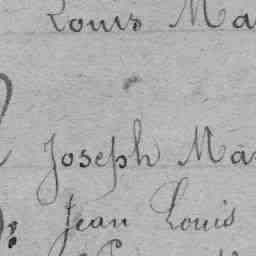 Louis Ma
Joseph Ma
Jean Louis